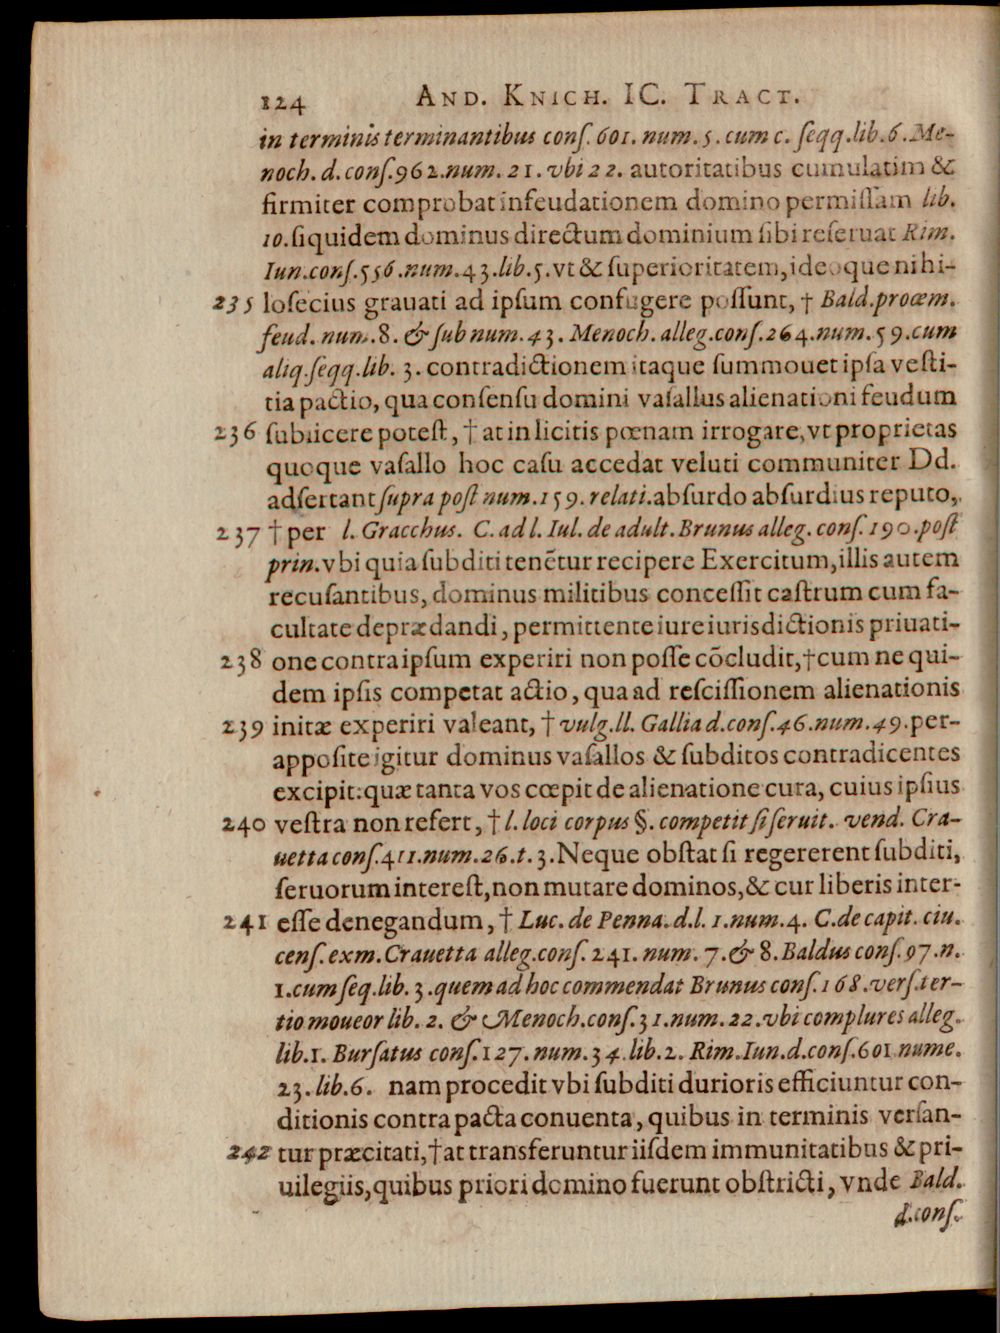 124 AND. KNICH. IC. TRACT.
in terminis terminantibus conſ. 601. num. 5. cum c. ſeqq. lib. 6. Me-
noch. d. conſ. 962. num. 21. vbi 22. autoritatibus cumulatim &
firmiter comprobat infeudationem domino permiſſam lib.
10. ſiquidem dominus directum dominium ſibi reſeruat Rim.
Iun. conſ. 556. num. 43. lib. 5. vt & ſuperioritatem, ideoque nihi-
235 loſecius grauati ad ipſum confugere poſſunt, † Bald. proœm.
feud. num. 8. & ſub num. 43. Menoch. alleg. conſ. 264. num. 59. cum
aliq. ſeqq. lib. 3. contradictionem itaque ſummouet ipſa veſti-
tia pactio, qua conſenſu domini vaſallus alienationi feudum
236 ſubiicere poteſt, † at in licitis pœnam irrogare, vt proprietas
quoque vaſallo hoc caſu accedat veluti communiter Dd.
adſertant ſupra poſt num. 159. relati. abſurdo abſurdius reputo,
237 † per l. Gracchus. C. ad l. Iul. de adult. Brunus alleg. conſ. 190. poſt
prin. vbi quia ſubditi tenẽtur recipere Exercitum, illis autem
recuſantibus, dominus militibus conceſſit caſtrum cum fa-
cultate deprædandi, permittente iure iurisdictionis priuati-
238 one contra ipſum experiri non poſſe cõcludit, † cum ne qui-
dem ipſis competat actio, qua ad reſciſſionem alienationis
239 initæ experiri valeant, † vulg. ll. Gallia d. conſ. 46. num. 49. per-
appoſite igitur dominus vaſallos & ſubditos contradicentes
excipit: quæ tanta vos cœpit de alienatione cura, cuius ipſius
240 veſtra non refert, † l. loci corpus §. competit ſi ſeruit. vend. Cra-
uetta conſ. 411. num. 26. t. 3. Neque obſtat ſi regererent ſubditi,
ſeruorum intereſt, non mutare dominos, & cur liberis inter-
241 eſſe denegandum, † Luc. de Penna. d. l. 1. num. 4. C. de capit. ciu.
cenſ. exm. Crauetta alleg. conſ. 241. num. 7. & 8. Baldus conſ. 97. n.
1. cum ſeq. lib. 3. quem ad hoc commendat Brunus conſ. 168. verſ. ter-
tio moueor lib. 2. & Menoch. conſ. 31. num. 22. vbi complures alleg.
lib. 1. Burſatus conſ. 127. num. 34. lib. 2. Rim. Iun. d. conſ. 601. nume.
23. lib. 6. nam procedit vbi ſubditi durioris efficiuntur con-
ditionis contra pacta conuenta, quibus in terminis verſan-
242 tur præcitati, † at transferuntur iiſdem immunitatibus & pri-
uilegiis, quibus priori domino fuerunt obſtricti, vnde Bald.
d. conſ.